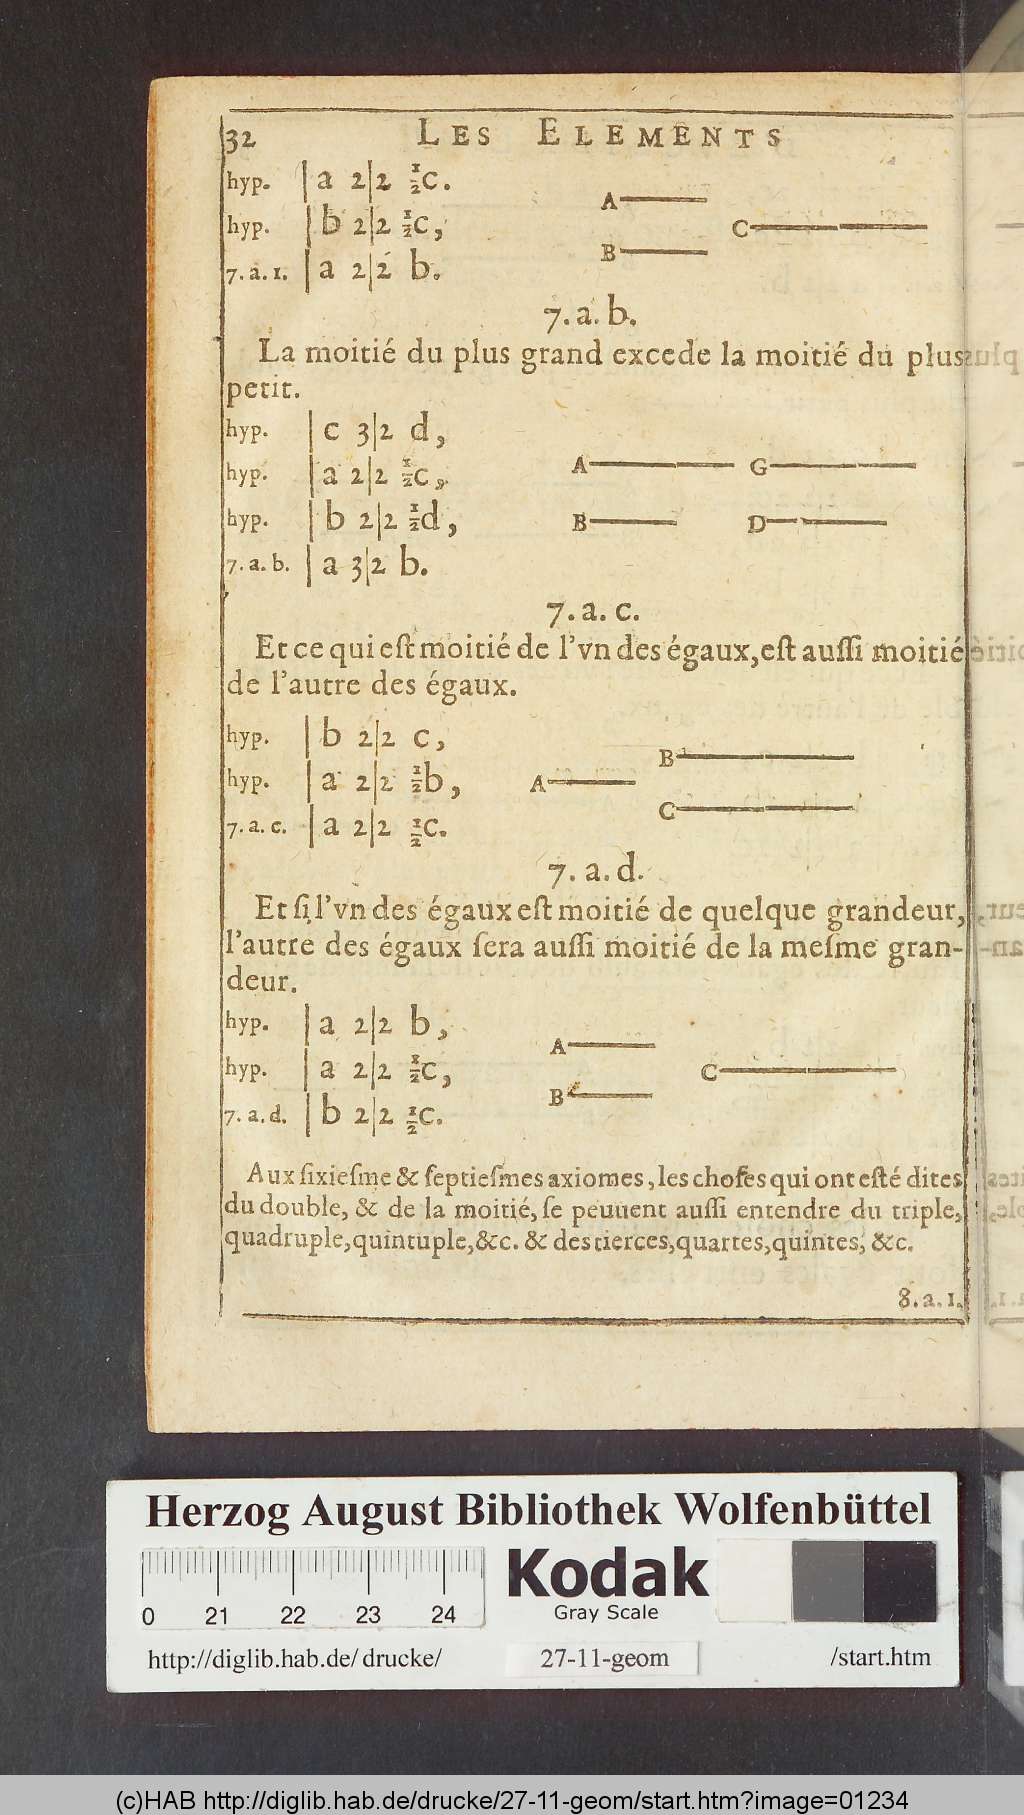 32 LES ELEMENTS
hyp. | a 2|2 ½c.
hyp. | b 2|2 ½c,
7. a. 1. | a 2|2 b.
A
C
B
7. a. b.
La moitié du plus grand excede la moitié du plus
petit.
hyp. | c 3|2 d,
hyp. | a 2|2 ½c,
hyp. | b 2|2 ½d,
7. a. b. | a 3|2 b.
A G
B D
7. a. c.
Et ce qui eſt moitié de l'vn des égaux, eſt auſſi moitié
de l'autre des égaux.
hyp. | b 2|2 c,
hyp. | a 2|2 ½b,
7. a. c. | a 2|2 ½c.
B
A
C
7. a. d.
Et ſi l'vn des égaux eſt moitié de quelque grandeur,
l'autre des égaux ſera auſſi moitié de la meſme gran-
deur.
hyp. | a 2|2 b,
hyp. | a 2|2 ½c,
7. a. d. | b 2|2 ½c.
A
C
B
Aux ſixieſme & ſeptieſmes axiomes, les choſes qui ont eſté dites
du double, & de la moitié, ſe peuuent auſſi entendre du triple,
quadruple, quintuple, &c. & des tierces, quartes, quintes, &c.
8. a. 1.
Herzog August Bibliothek Wolfenbüttel
0 21 22 23 24
Kodak
Gray Scale
http://diglib.hab.de/drucke/ 27-11-geom /start.htm
(c)HAB http://diglib.hab.de/drucke/27-11-geom/start.htm?image=01234